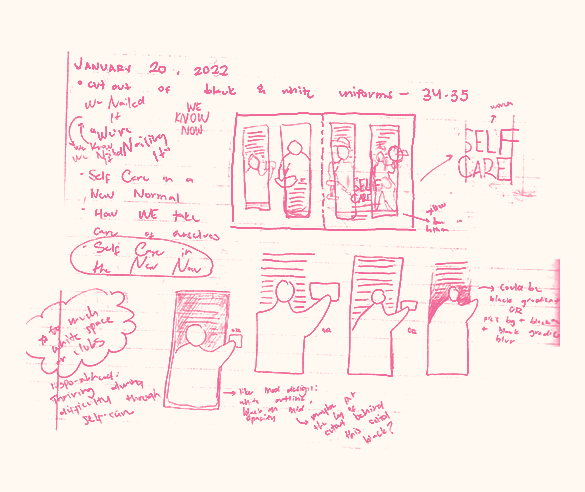 JANUARY 20, 2022
• cut out of black & white uniforms - 34-35
We Nailed
It
WE
KNOW
NOW
We're Nailing
It"
We Know
We Nailed
- Self Care in a
New Normal
- How WE take
care of ourselves
- Self Care in
the New Now
SELF
CARE
SELF
CARE
yellow
too much
white space
for clubs
thriving during
difficulty through
self-care
OR
OR
OR
→ could be
black gradient
OR
+ black gradient
blur
→ like mood designs:
white outline,
black on
opacity
↳ maybe put
the bg of
cutout behind
this solid
black?